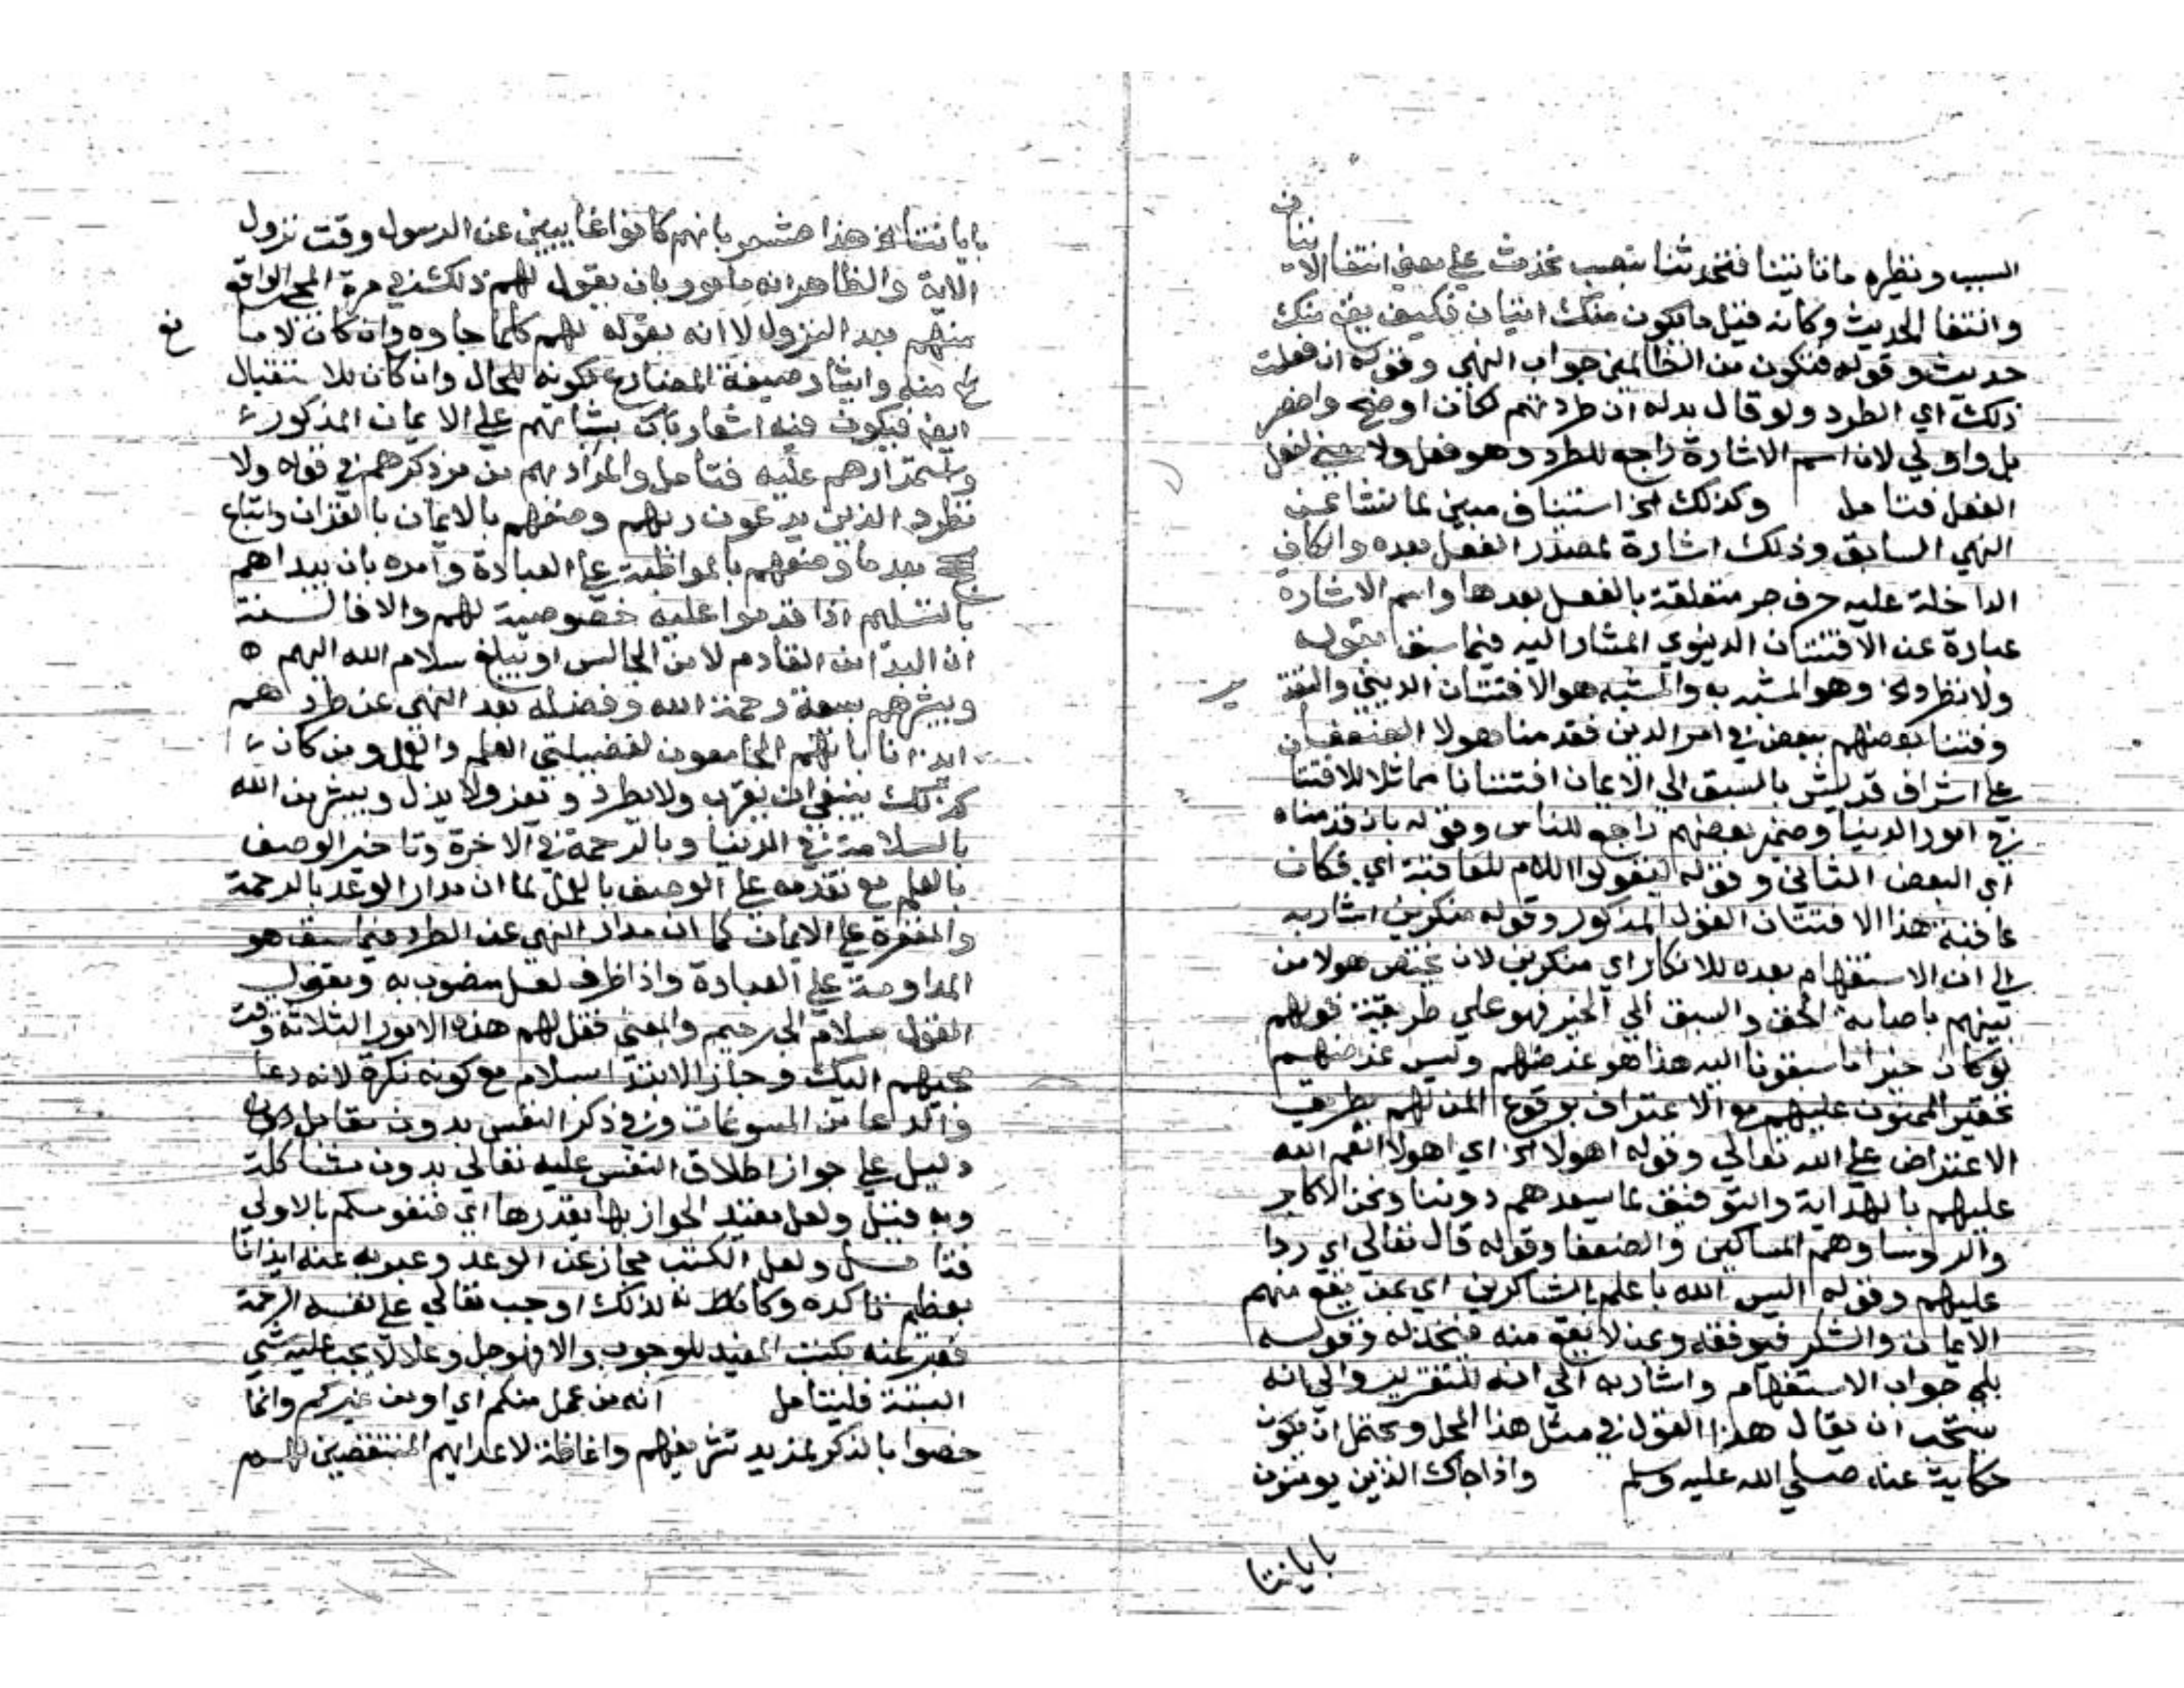 السبب ونظيره ما تاتينا فتحدثنا بنصب تحدث على معنى انتفا الاتيان
وانتفا الحديث وكانه قيل ما يكون منك اتيان فكيف يقع منك
حديث وقوله فتكون من الظالمين جواب النهي وقوله ان فعلت
ذلك اي الطرد ولو قال بدله ان طردتهم لكان اوضح واخصر
بل واولي لان اسم الاشارة راجع للطرد وهو فعل ولا معنى لفعل
الفعل فتامل وكذلك الخ استيناف مبين لما نشا عن
النهي السابق وذلك اشارة لمصدر الفعل بعده والكاف
الداخلة عليه حرف جر متعلقة بالفعل بعدها واسم الاشارة
عبارة عن الافتتان الدنيوي المشار اليه فيما سبق بقوله
ولا تطرد الخ وهو المشبه به والمشبه هو الافتتان الديني والتقد
وفتنا بعضهم ببعض في امر الدين فقدمنا هولا الضعفا
على اشراف قريش بالسبق الي الايمان افتتانا مماثلا للافتتا
في امور الدنيا وضمير بعضهم راجع للناس وقوله بان قدمناه
اي البعض الثاني وقوله ليقولوا اللام للعاقبة اي فكان
عاقبة هذا الافتتان القول المذكور وقوله منكرين اشار به
الى ان الاستفهام بعده للانكار اي منكرين لان يختص هولا من
بينهم باصابة الحق والسبق الي الخير فهو علي طريقة قولهم
لو كان خيرا ما سبقونا اليه هذا هو غرضهم وليس غرضهم
تحقير الممنون عليهم مع الاعتراف بوقوع المن لهم بطريق
الاعتراض على الله تعالي وقوله اهولا الخ اي اهولا انعم الله
عليهم بالهداية والتوفيق لما يسعدهم دوننا ونحن الاكابر
والروسا وهم المساكين والضعفا وقوله قال تعالي اي ردا
عليهم وقوله اليس الله باعلم بالشاكرين اي بمن يقع منهم
الايمان والشكر فيوفقه وبمن لا يقع منه فيخذله وقوله
بلي جواب الاستفهام واشار به الي انه للتقرير والي انه
يستحب ان يقال هذا القول في مثل هذا المحل ويحتمل ان يكون
حكاية عنه صلي الله عليه وسلم واذا جاك الذين يومنون
باياتنا
باياتنا الخ هذا مشعر بانهم كانوا غايبين عن الرسول وقت نزول
الاية والظاهر انه مامور بان يقول لهم ذلك في مرة المجي الواقع
منهم بعد النزول لا انه يقوله لهم كلما جاوه وان كان لا ما
نع منه وايثار صيغة المضارع لكونه للحال وان كان للاستقبال
ايضا فيكون فيه اشعار بثباتهم على الايمان المذكور
واستمرارهم عليه فتامل والمراد بهم من مر ذكرهم في قوله ولا
تطرد الذين يدعون ربهم وصفهم بالايمان بالقران واتباع
بعد ما وصفهم بالمواظبة على العبادة وامره بان يبداهم
بالتسليم اذا قدموا عليه خصوصية لهم والا فالسنة
ان البدا من القادم لا من الجالس او تبليغ سلام الله اليهم
ويبشرهم بسعة رحمة الله وفضله بعد النهي عن طردهم
ايذانا بانهم الجامعون لفضيلتي العلم والعمل ومن كان
كذلك ينبغي ان يقرب ولا يطرد ويعز ولا يذل ويبشر من الله
بالسلامة في الدنيا وبالرحمة في الاخرة وتاخير الوصف
بالعلم مع تقدمه على الوصف بالعمل لما ان مدار الوعد بالرحمة
والمغفرة على الايمان كما ان مدار النهي عن الطرد فيما سبق هو
المداومة على العبادة واذا ظرف لقل منصوب به ومقول
القول سلام الى رحيم والمعنى فقل لهم هذه الامور الثلاثة وقت
مجيهم اليك وجاز الابتدا بسلام مع كونه نكرة لانه دعا
والدعا من المسوغات وفي ذكر النفس بدون مقابل
دليل على جواز اطلاق النفس عليه تعالي بدون مشاكلة
وبه قيل ولعل الجواز بها اي فنفوسكم بالاولي
فتامل ولعل الكتب مجاز عن الوعد وعبر به عنه ايذانا
بعظم تاكده وكانه لذلك اوجب تعالي على نفسه الرحمة
فعبر عنه بكتب المفيد للوجوب والا فهو جل وعلا لا يجب عليه شي
البتة فليتامل انه من عمل منكم اي او من غيركم وانما
خصوا بالذكر لمزيد تشريفهم واغاظة لاعدايهم المنتقصين لهم